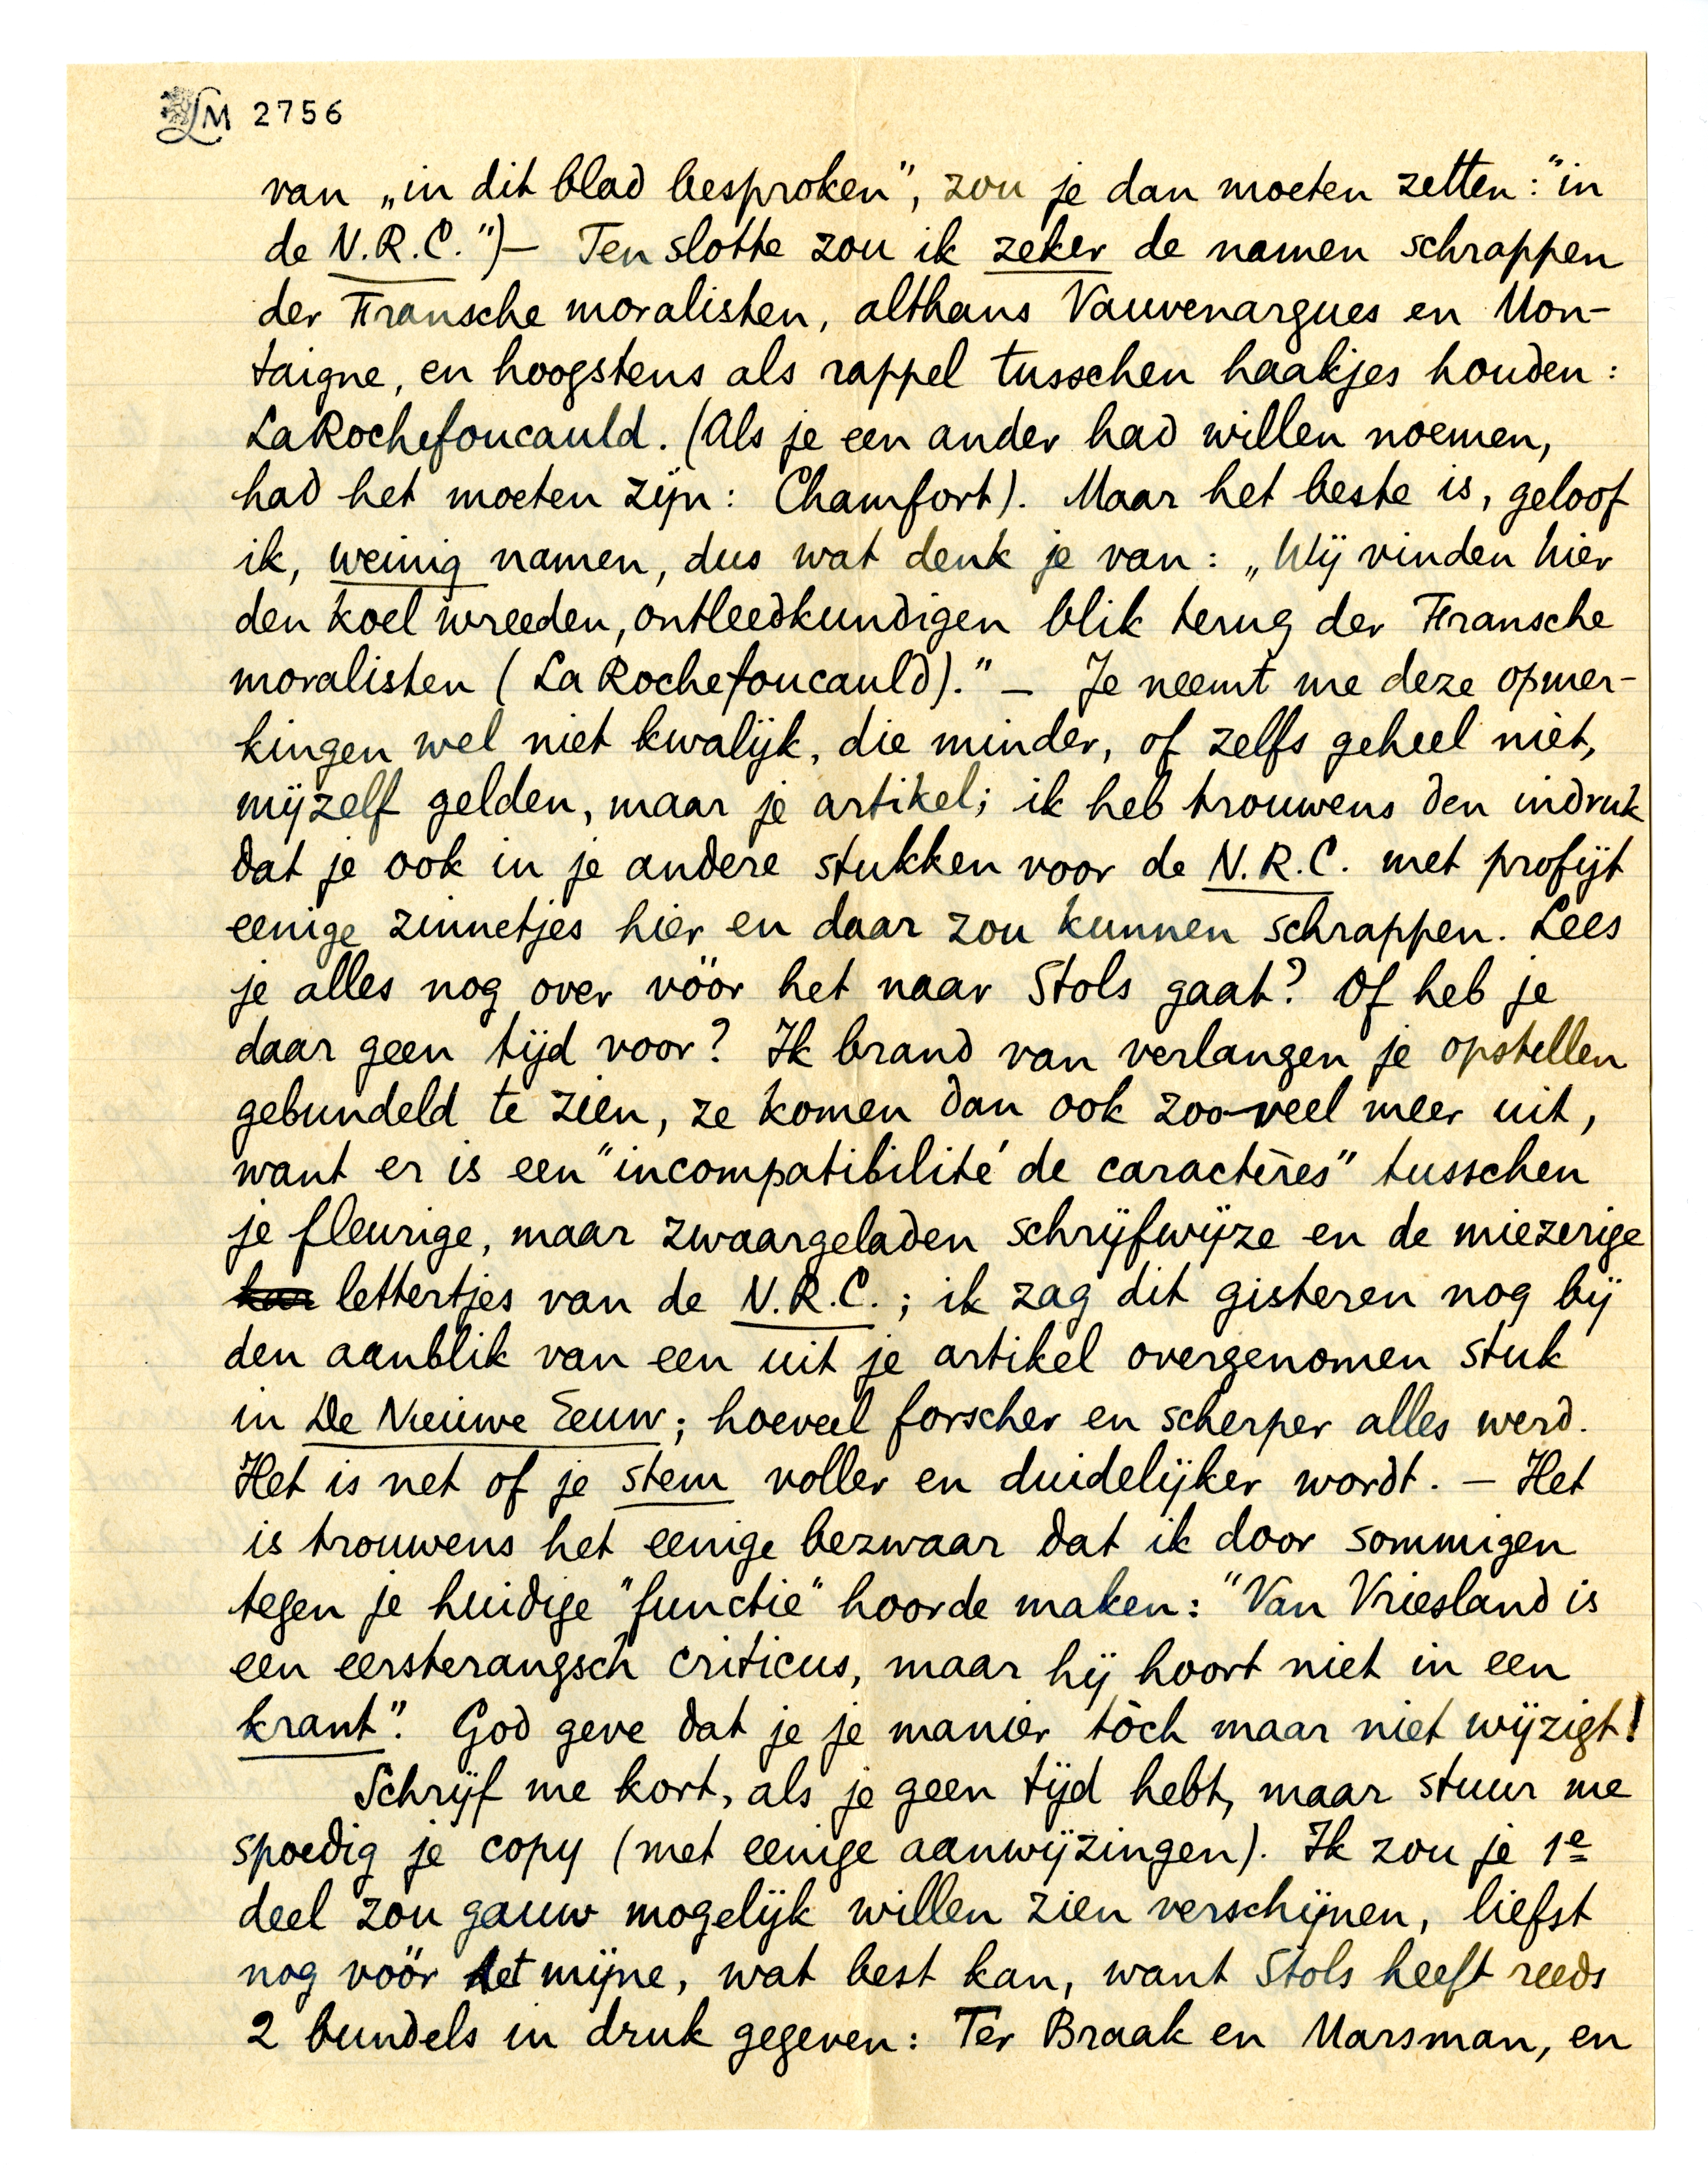 LM 2756
van „in dit blad besproken”, zou je dan moeten zetten: "in
de N.R.C.")— Ten slotte zou ik zeker de namen schrappen
der Fransche moralisten, althans Vauvenargues en Mon-
taigne, en hoogstens als rappel tusschen haakjes houden:
La Rochefoucauld. (Als je een ander had willen noemen,
had het moeten zijn: Chamfort). Maar het beste is, geloof
ik, weinig namen, dus wat denk je van: „Wij vinden hier
den koel wreeden, ontleedkundigen blik terug der Fransche
moralisten (La Rochefoucauld)." — Je neemt me deze opmer-
kingen wel niet kwalijk, die minder, of zelfs geheel niet,
mijzelf gelden, maar je artikel; ik heb trouwens den indruk
dat je ook in je andere stukken voor de N.R.C. met profijt
eenige zinnetjes hier en daar zou kunnen schrappen. Lees
je alles nog over vóór het naar Stols gaat? Of heb je
daar geen tijd voor? Ik brand van verlangen je opstellen
gebundeld te zien, ze komen dan ook zoo-veel meer uit,
want er is een "incompatibilité de caractères" tusschen
je fleurige, maar zwaargeladen schrijfwijze en de miezerige
lettertjes van de N.R.C.; ik zag dit gisteren nog bij
den aanblik van een uit je artikel overgenomen stuk
in De Nieuwe Eeuw; hoeveel forscher en scherper alles werd.
Het is net of je stem voller en duidelijker wordt. — Het
is trouwens het eenige bezwaar dat ik door sommigen
tegen je huidige "functie" hoorde maken: "Van Vriesland is
een eersterangsch criticus, maar hij hoort niet in een
krant". God geve dat je je manier tòch maar niet wijzigt!
Schrijf me kort, als je geen tijd hebt, maar stuur me
spoedig je copy (met eenige aanwijzingen). Ik zou je 1e
deel zou gauw mogelijk willen zien verschijnen, liefst
nog vóór het mijne, wat best kan, want Stols heeft reeds
2 bundels in druk gegeven: Ter Braak en Marsman, en